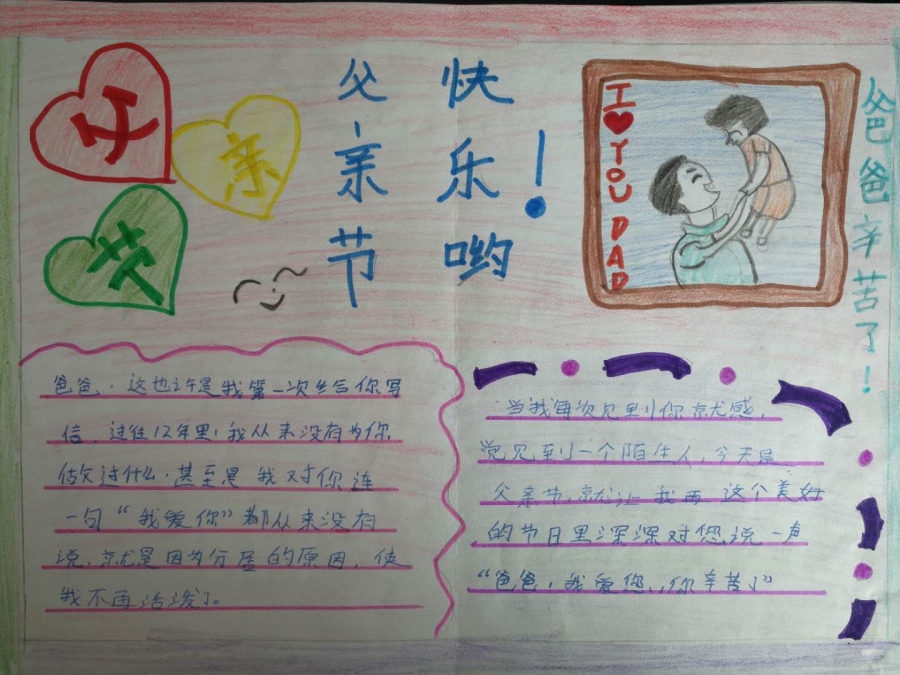 父
亲
节
父亲节
快乐哟!
I ❤ YOU DAD
爸爸辛苦了!
爸爸,这也许是我第一次给你写
信,过往12年里,我从来没有为你
做过什么,甚至是我对你连
一句“我爱你”都从来没有
说,就是因为分居的原因,使
我不再活泼了。
当我每次见到你就感
觉见到一个陌生人,今天是
父亲节,就让我再这个美好
的节日里深深对您说一声
“爸爸,我爱您,你辛苦了”